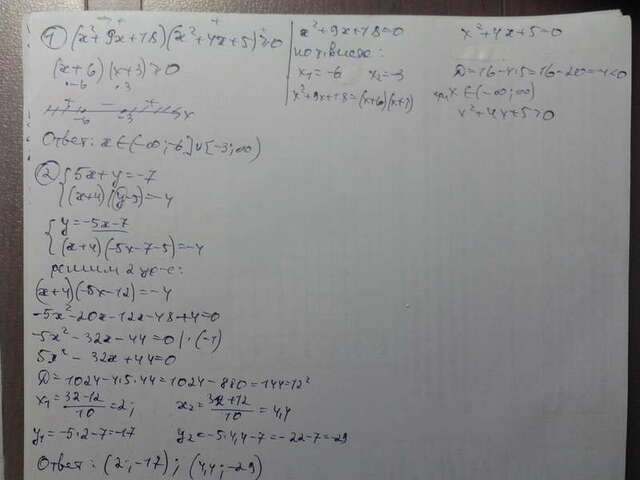 1) (x²+9x+18)(x²+4x+5)≥0
(x+6)(x+3)≥0
-6 -3
+ - +
-6 -3 x
Ответ: x∈(-∞;-6]∪[-3;∞)
x²+9x+18=0
по т. Виета:
x₁=-6 x₂=-3
x²+9x+18=(x+6)(x+3)
x²+4x+5=0
D=16-4·5=16-20=-4<0
x∈(-∞;∞)
x²+4x+5>0
2) {5x+y=-7
(x+4)(y-5)=-4
{y=-5x-7
(x+4)(-5x-7-5)=-4
решим 2 ур-е:
(x+4)(-5x-12)=-4
-5x²-20x-12x-48+4=0
-5x²-32x-44=0 |·(-1)
5x²-32x+44=0
D=1024-4·5·44=1024-880=144=12²
x₁=32-12/10=2; x₂=32+12/10=4,4
y₁=-5·2-7=-17 y₂=-5·4,4-7=-22-7=-29
Ответ: (2;-17); (4,4;-29)